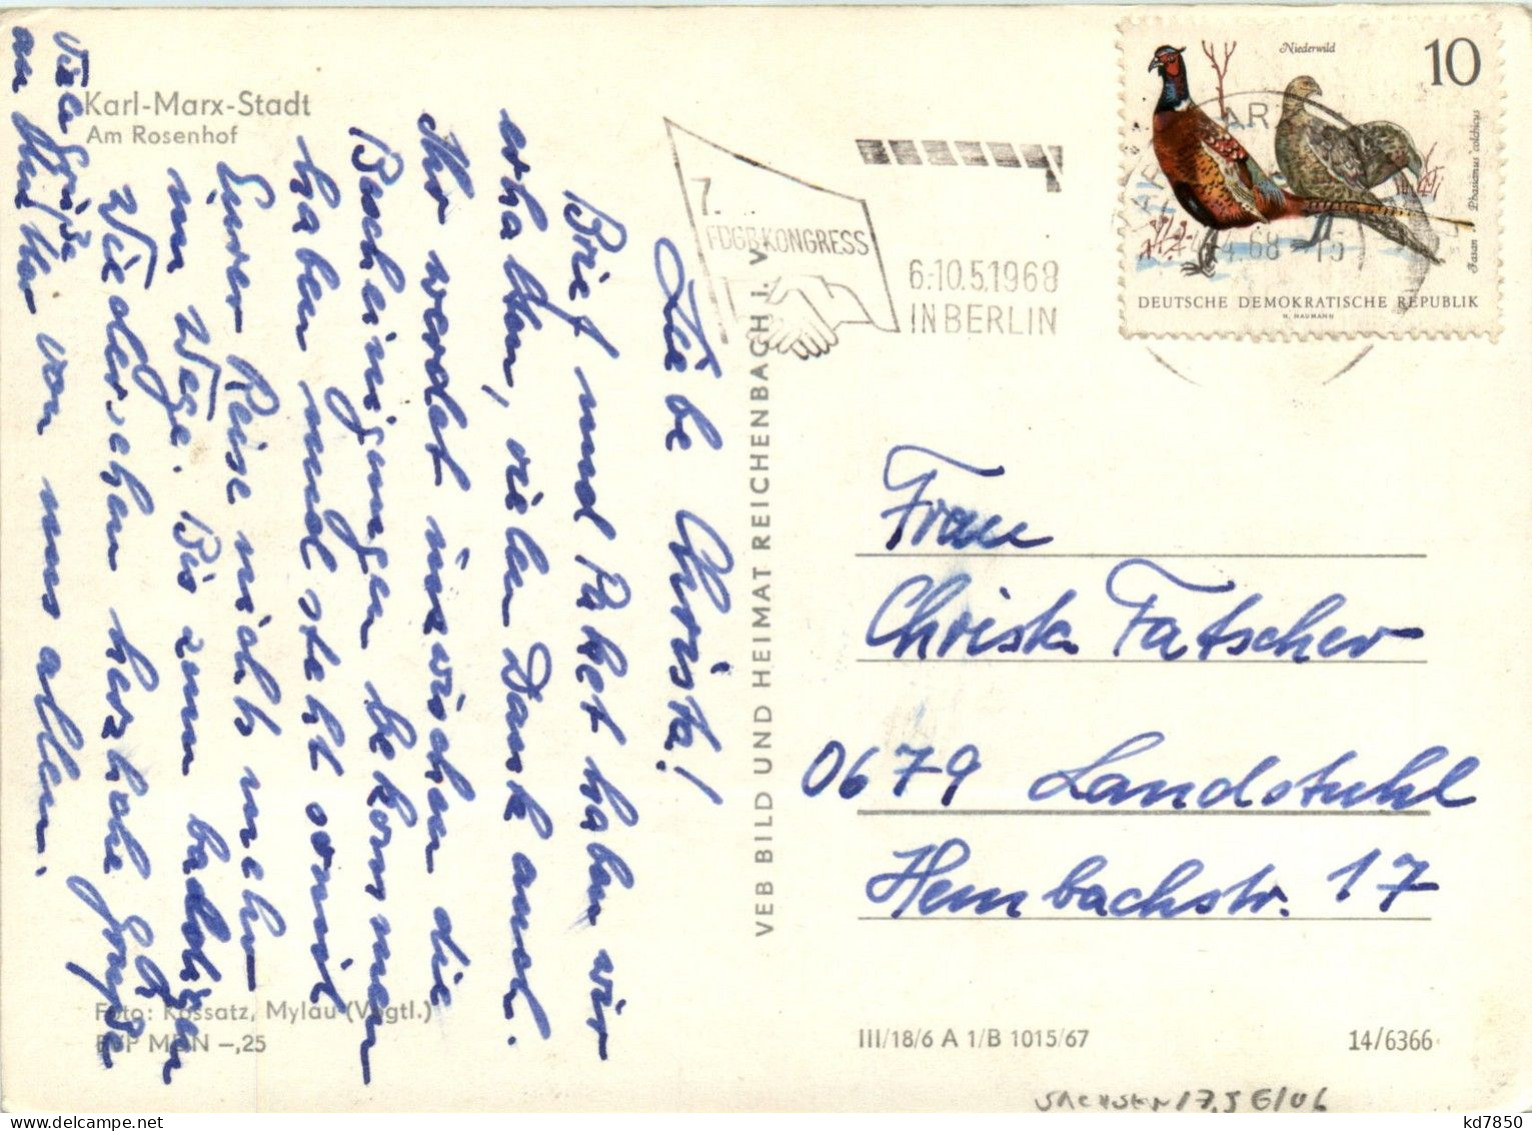 Karl-Marx-Stadt
Am Rosenhof
Liebe Christa!
Brief und Paket haben wir
erhalten, vielen Dank auch.
Ihr werdet inzwischen die
Bescheinigungen bekommen
haben und steht somit
Eurer Reise nichts mehr
im Wege. Bis zum baldigen
Wiedersehen herzliche Grüße
an Mutter von uns allen.
Viele Grüße
Foto: Kossatz, Mylau (Vogtl.)
EVP MDN –,25
VEB BILD UND HEIMAT REICHENBACH i. V.
7.
FDGB KONGRESS
6.-10.5.1968
IN BERLIN
Niederwild
10
Fasan
Phasianus colchicus
DEUTSCHE DEMOKRATISCHE REPUBLIK
H. NAUMANN
4.68 - 15
Frau
Christa Fatscher
0679 Landstuhl
Hembachstr. 17
III/18/6 A 1/B 1015/67
14/6366
kd7850